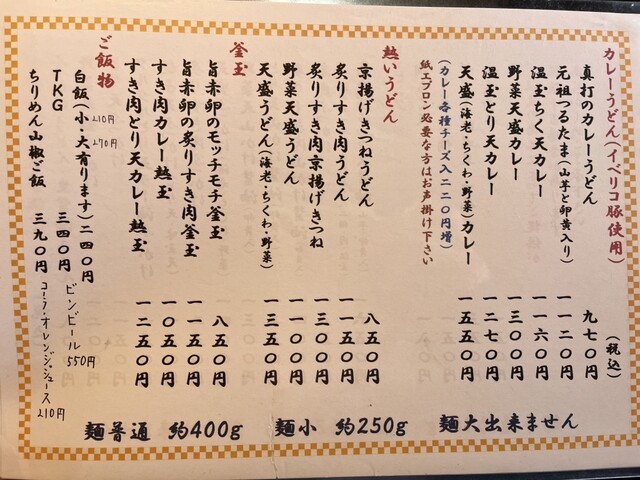 カレーうどん(イベリコ豚使用)
(税込)
真打のカレーうどん 九七〇円
元祖つるたま(山芋と卵黄入り) 一一二〇円
温玉ちく天カレー 一一六〇円
野菜天盛カレー 一三〇〇円
温玉とり天カレー 一二七〇円
天盛(海老・ちくわ・野菜)カレー 一五五〇円
(カレー各種チーズ入二二〇円増)
紙エプロン必要な方はお声掛け下さい
熱いうどん
京揚げきつねうどん 八五〇円
炙りすき肉うどん 一一五〇円
炙りすき肉京揚げきつね 一三〇〇円
野菜天盛うどん 一一〇〇円
天盛うどん(海老・ちくわ・野菜) 一三五〇円
釜玉
旨赤卵のモッチモチ釜玉 八五〇円
旨赤卵の炙りすき肉釜玉 一一五〇円
すき肉カレー熱玉 一〇五〇円
すき肉とり天カレー熱玉 一二五〇円
ご飯物
白飯(小・大有ります) 二四〇円
210円 270円
TKG 三四〇円
ちりめん山椒ご飯 三九〇円
ビンビール 550円
コーラ・オレンジジュース 210円
麺普通 約400g 麺小 約250g 麺大出来ません